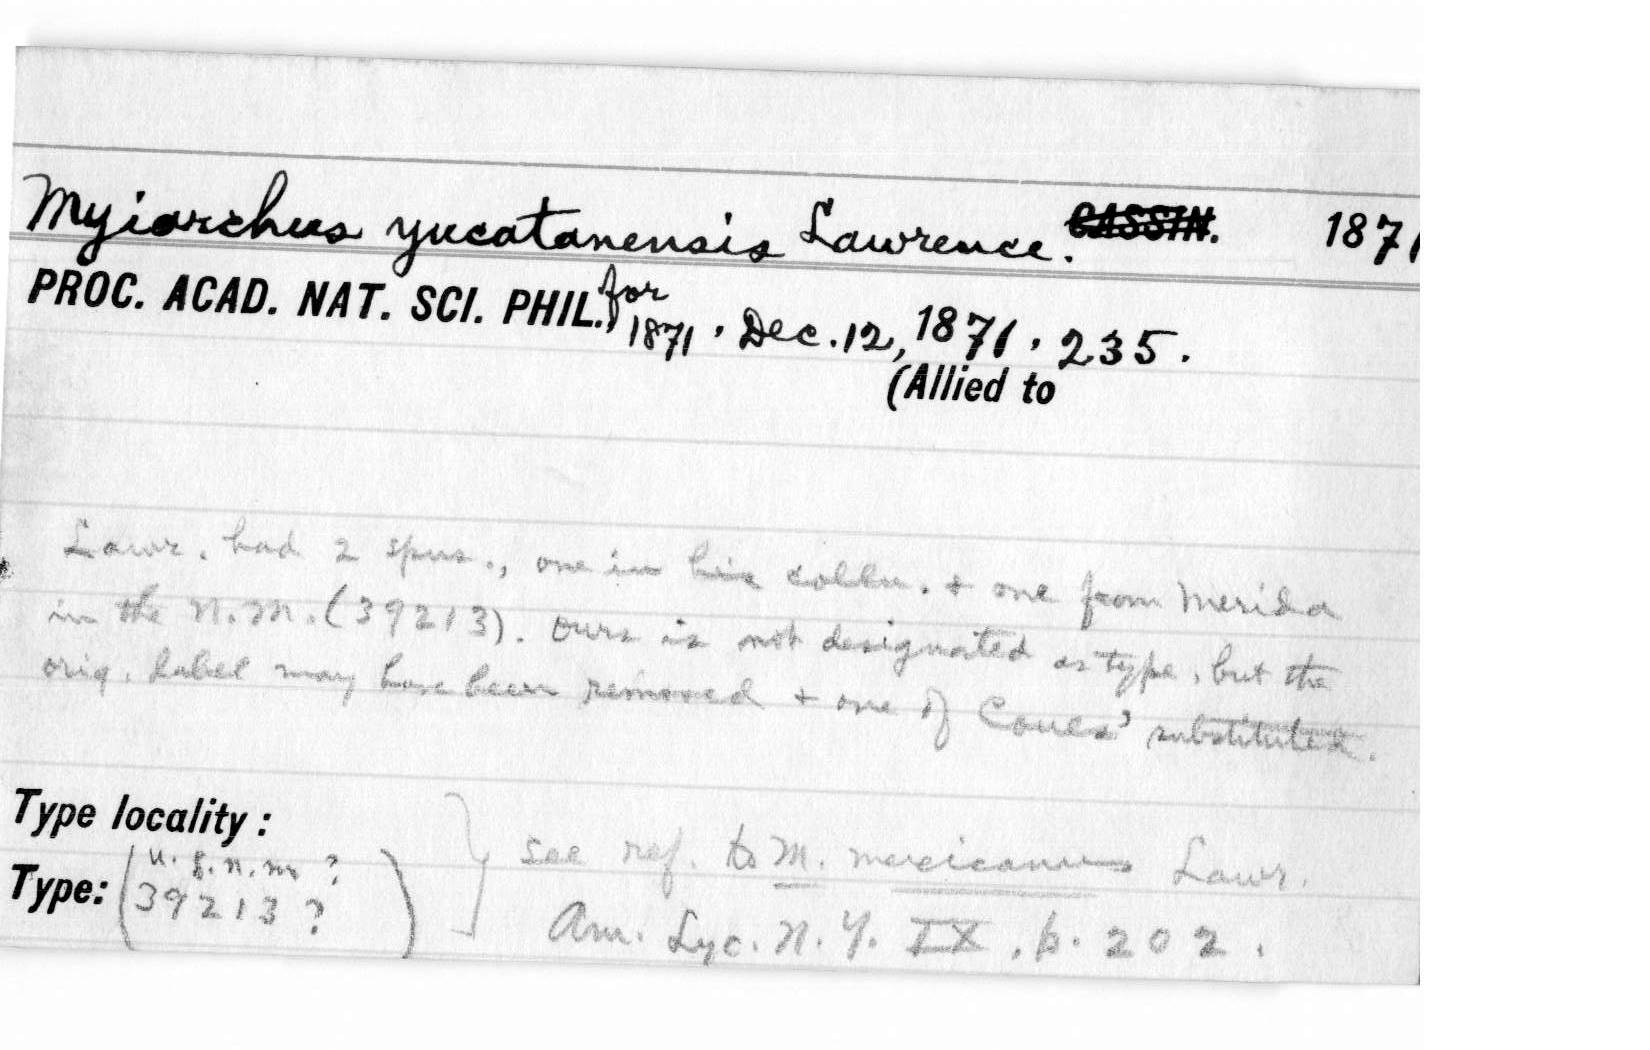 Myiarchus yucatanensis Lawrence. CASSIN. 1871
PROC. ACAD. NAT. SCI. PHIL., for 1871, Dec. 12, 1871, 235.
(Allied to
Lawr. had 2 spns., one in his colln. + one from Merida
in the N.M. (39213). Ours is not designated as type, but the
orig. label may have been removed + one of Coues' substituted.
Type locality:
Type: (U.S.N.M. ?
39213 ? )
see ref. to M. mexicanus Lawr.
Am. Lyc. N.Y. IX, p. 202.